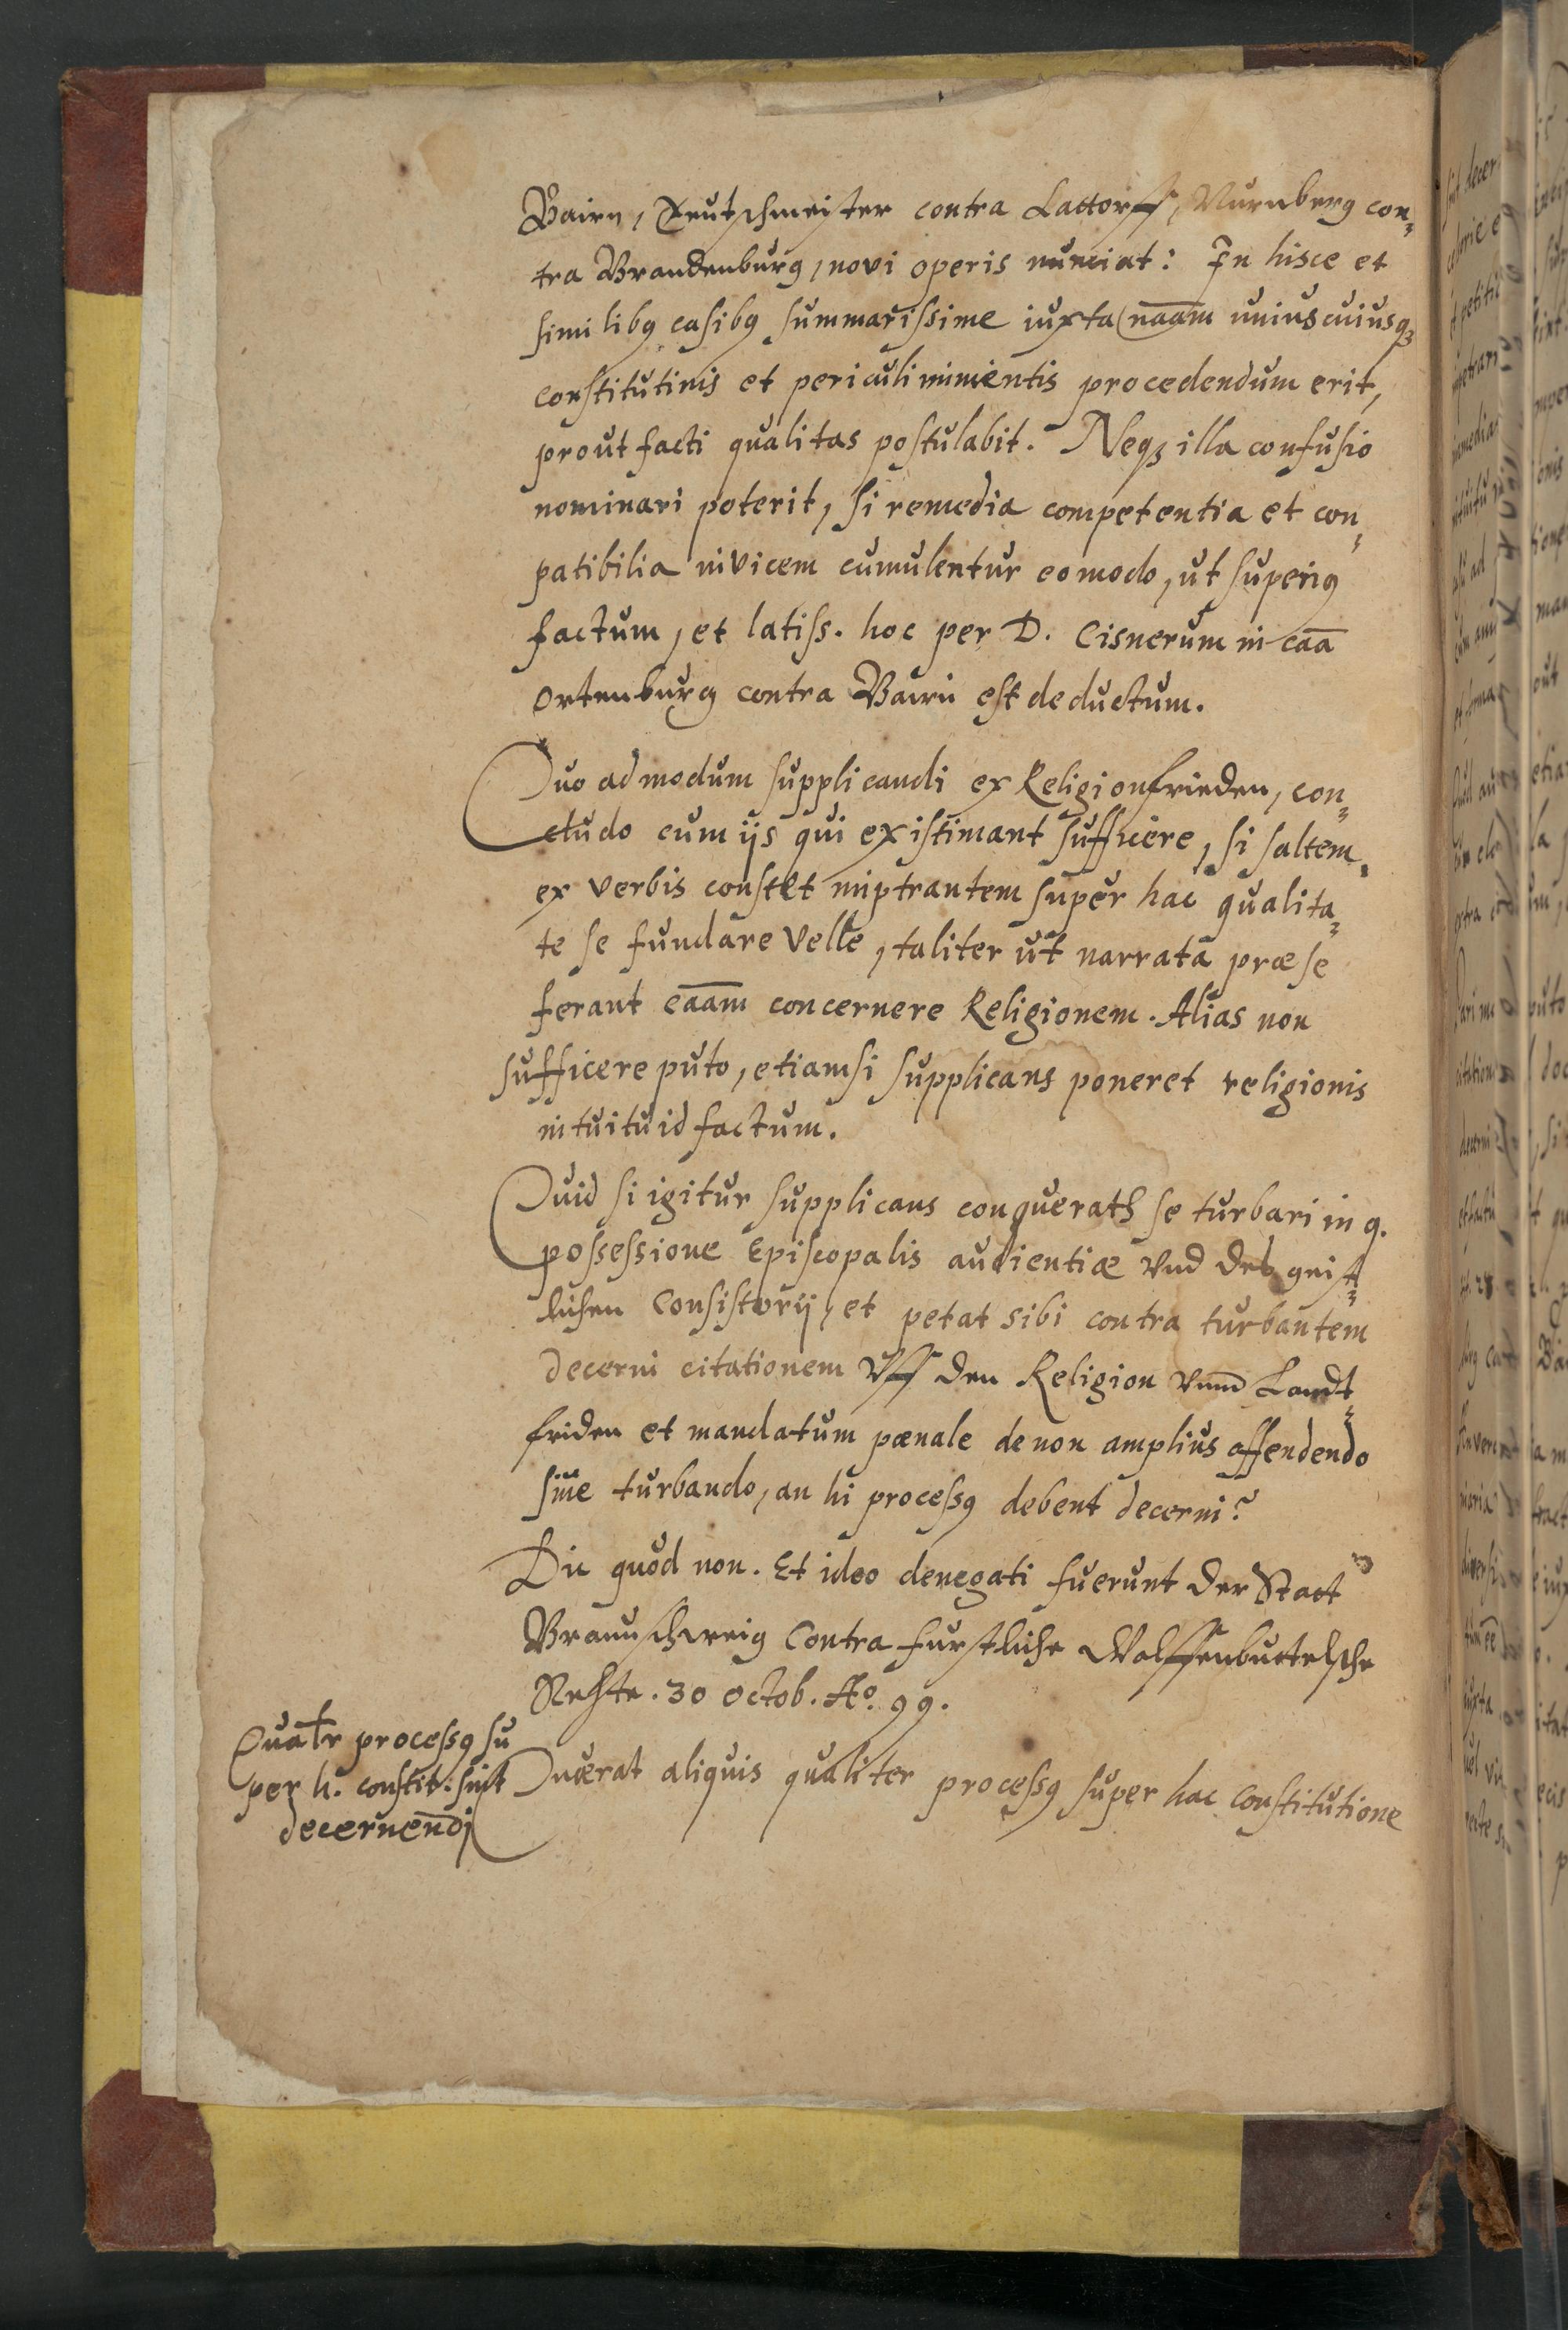 Bairn, Teutschmeister contra Lattorff, Nurnberg con¬
tra Brandenburg, novi operis nunciat: In hisce et
similibꝰ casibꝰ summarissime iuxta naām uniuscuiusqꝫ
constitutinis et periculi iminentis procedendum erit,
prout facti qualitas postulabit. Neqꝫ illa confusio
nominari poterit, si remedia competentia et con¬
patibilia invicem cumulentur eo modo, ut superiꝰ
factum, et latiss. hoc per D. Cisnerum in caā
Ortenburg contra Bairn est deductum.
Quo ad modum supplicandi ex Religionfrieden, con¬
cludo cum ijs qui existimant sufficere, si saltem
ex verbis constet imptrantem super hac qualita¬
te se fundare velle, taliter ut narrata præ se
ferant caām concernere Religionem. Alias non
sufficere puto, etiamsi supplicans poneret religionis
intuitu id factum.
Quid si igitur supplicans conquerath se turbari in q.
possessione Episcopalis audientiæ vnd des geist¬
lichen Consistorij, et petat sibi contra turbantem
decerni citationem vff den Religion vnnd Landt¬
friden et mandatum pœnale de non amplius offendendo
siue turbando, an hi processꝰ debent decerni?
Dic quod non. Et ideo denegati fuerunt der Stadt
Braunschweig Contra furstliche Wolffenbuttelsche
Rehte. 30 Octob. Aº. 99.
Quatr processꝰ su
per h. constit. sint
decernendj
Quærat aliquis qualiter processꝰ super hac Constitutione